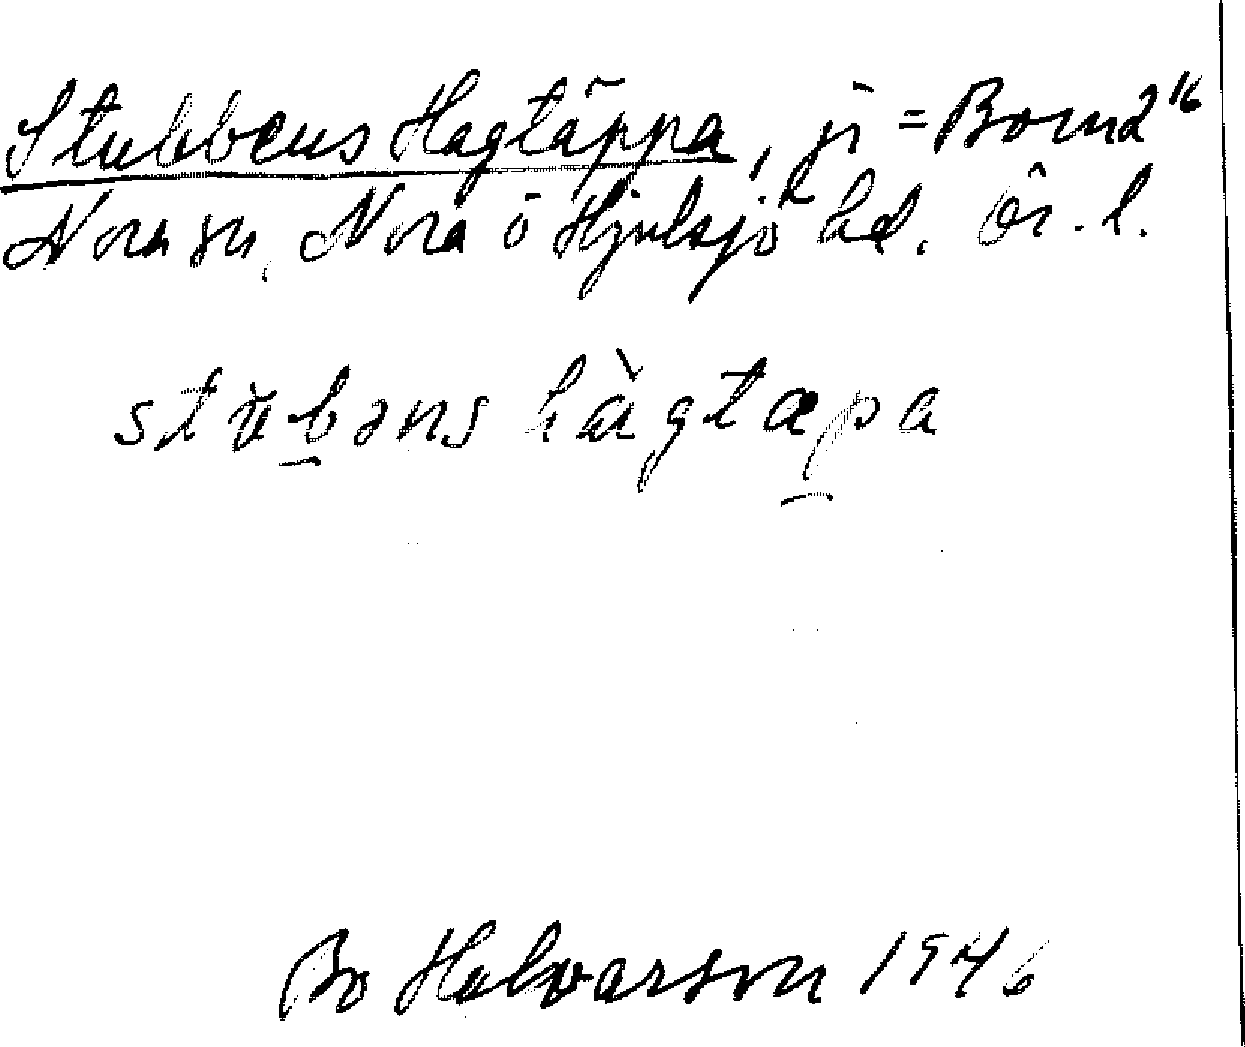 Stubbens Hagtäppa, = Born 2 16
Nora sn, Nora o Hjulsjö hd. Ör. l.
stubəns hàgtæpa
Bo Halvarson 1946